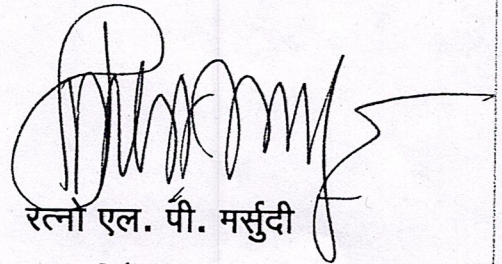 रत्नो एल. पी. मर्सुदी